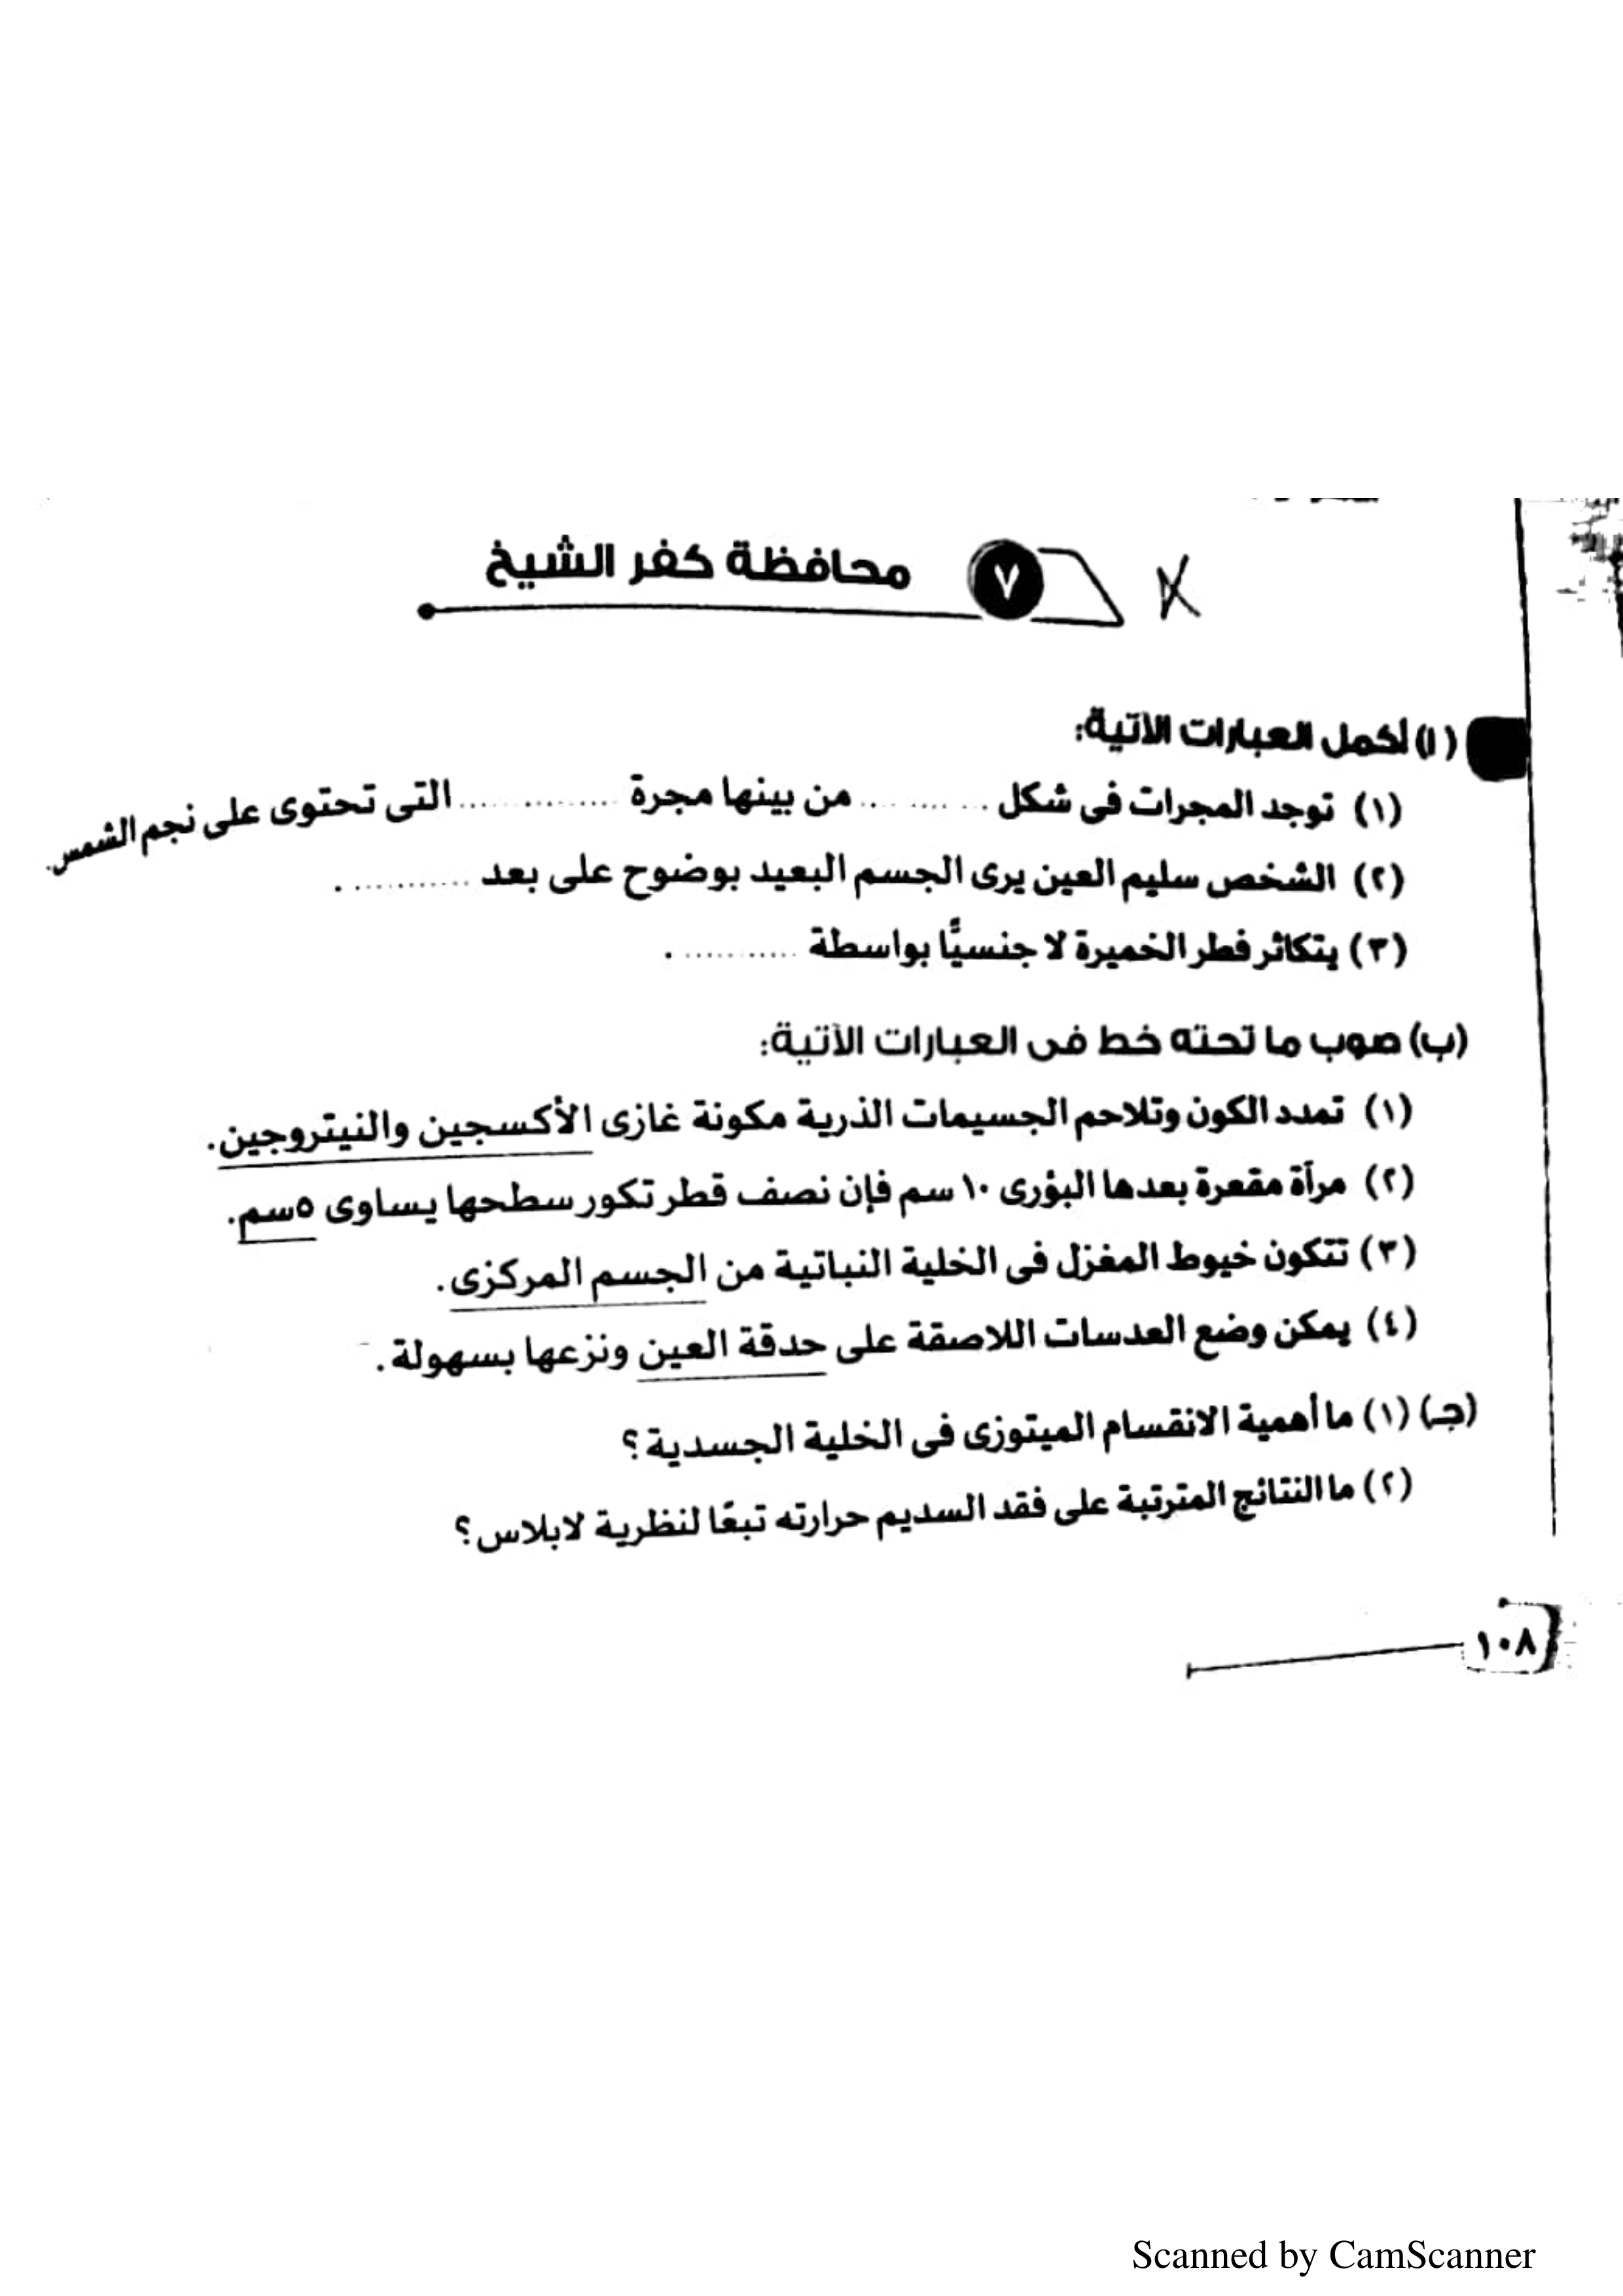 ٧ محافظة كفر الشيخ
(أ) أكمل العبارات الآتية:
(١) توجد المجرات فى شكل ............ من بينها مجرة ............ التى تحتوى على نجم الشمس.
(٢) الشخص سليم العين يرى الجسم البعيد بوضوح على بعد ............ .
(٣) يتكاثر فطر الخميرة لا جنسيًّا بواسطة ............ .
(ب) صوب ما تحته خط فى العبارات الآتية:
(١) تمدد الكون وتلاحم الجسيمات الذرية مكونة غازى الأكسجين والنيتروجين.
(٢) مرآة مقعرة بعدها البؤرى ١٠ سم فإن نصف قطر تكور سطحها يساوى ٥سم.
(٣) تتكون خيوط المغزل فى الخلية النباتية من الجسم المركزى.
(٤) يمكن وضع العدسات اللاصقة على حدقة العين ونزعها بسهولة.
(جـ) (١) ما أهمية الانقسام الميتوزى فى الخلية الجسدية؟
(٢) ما النتائج المترتبة على فقد السديم حرارته تبعًا لنظرية لابلاس؟
١٠٨
Scanned by CamScanner